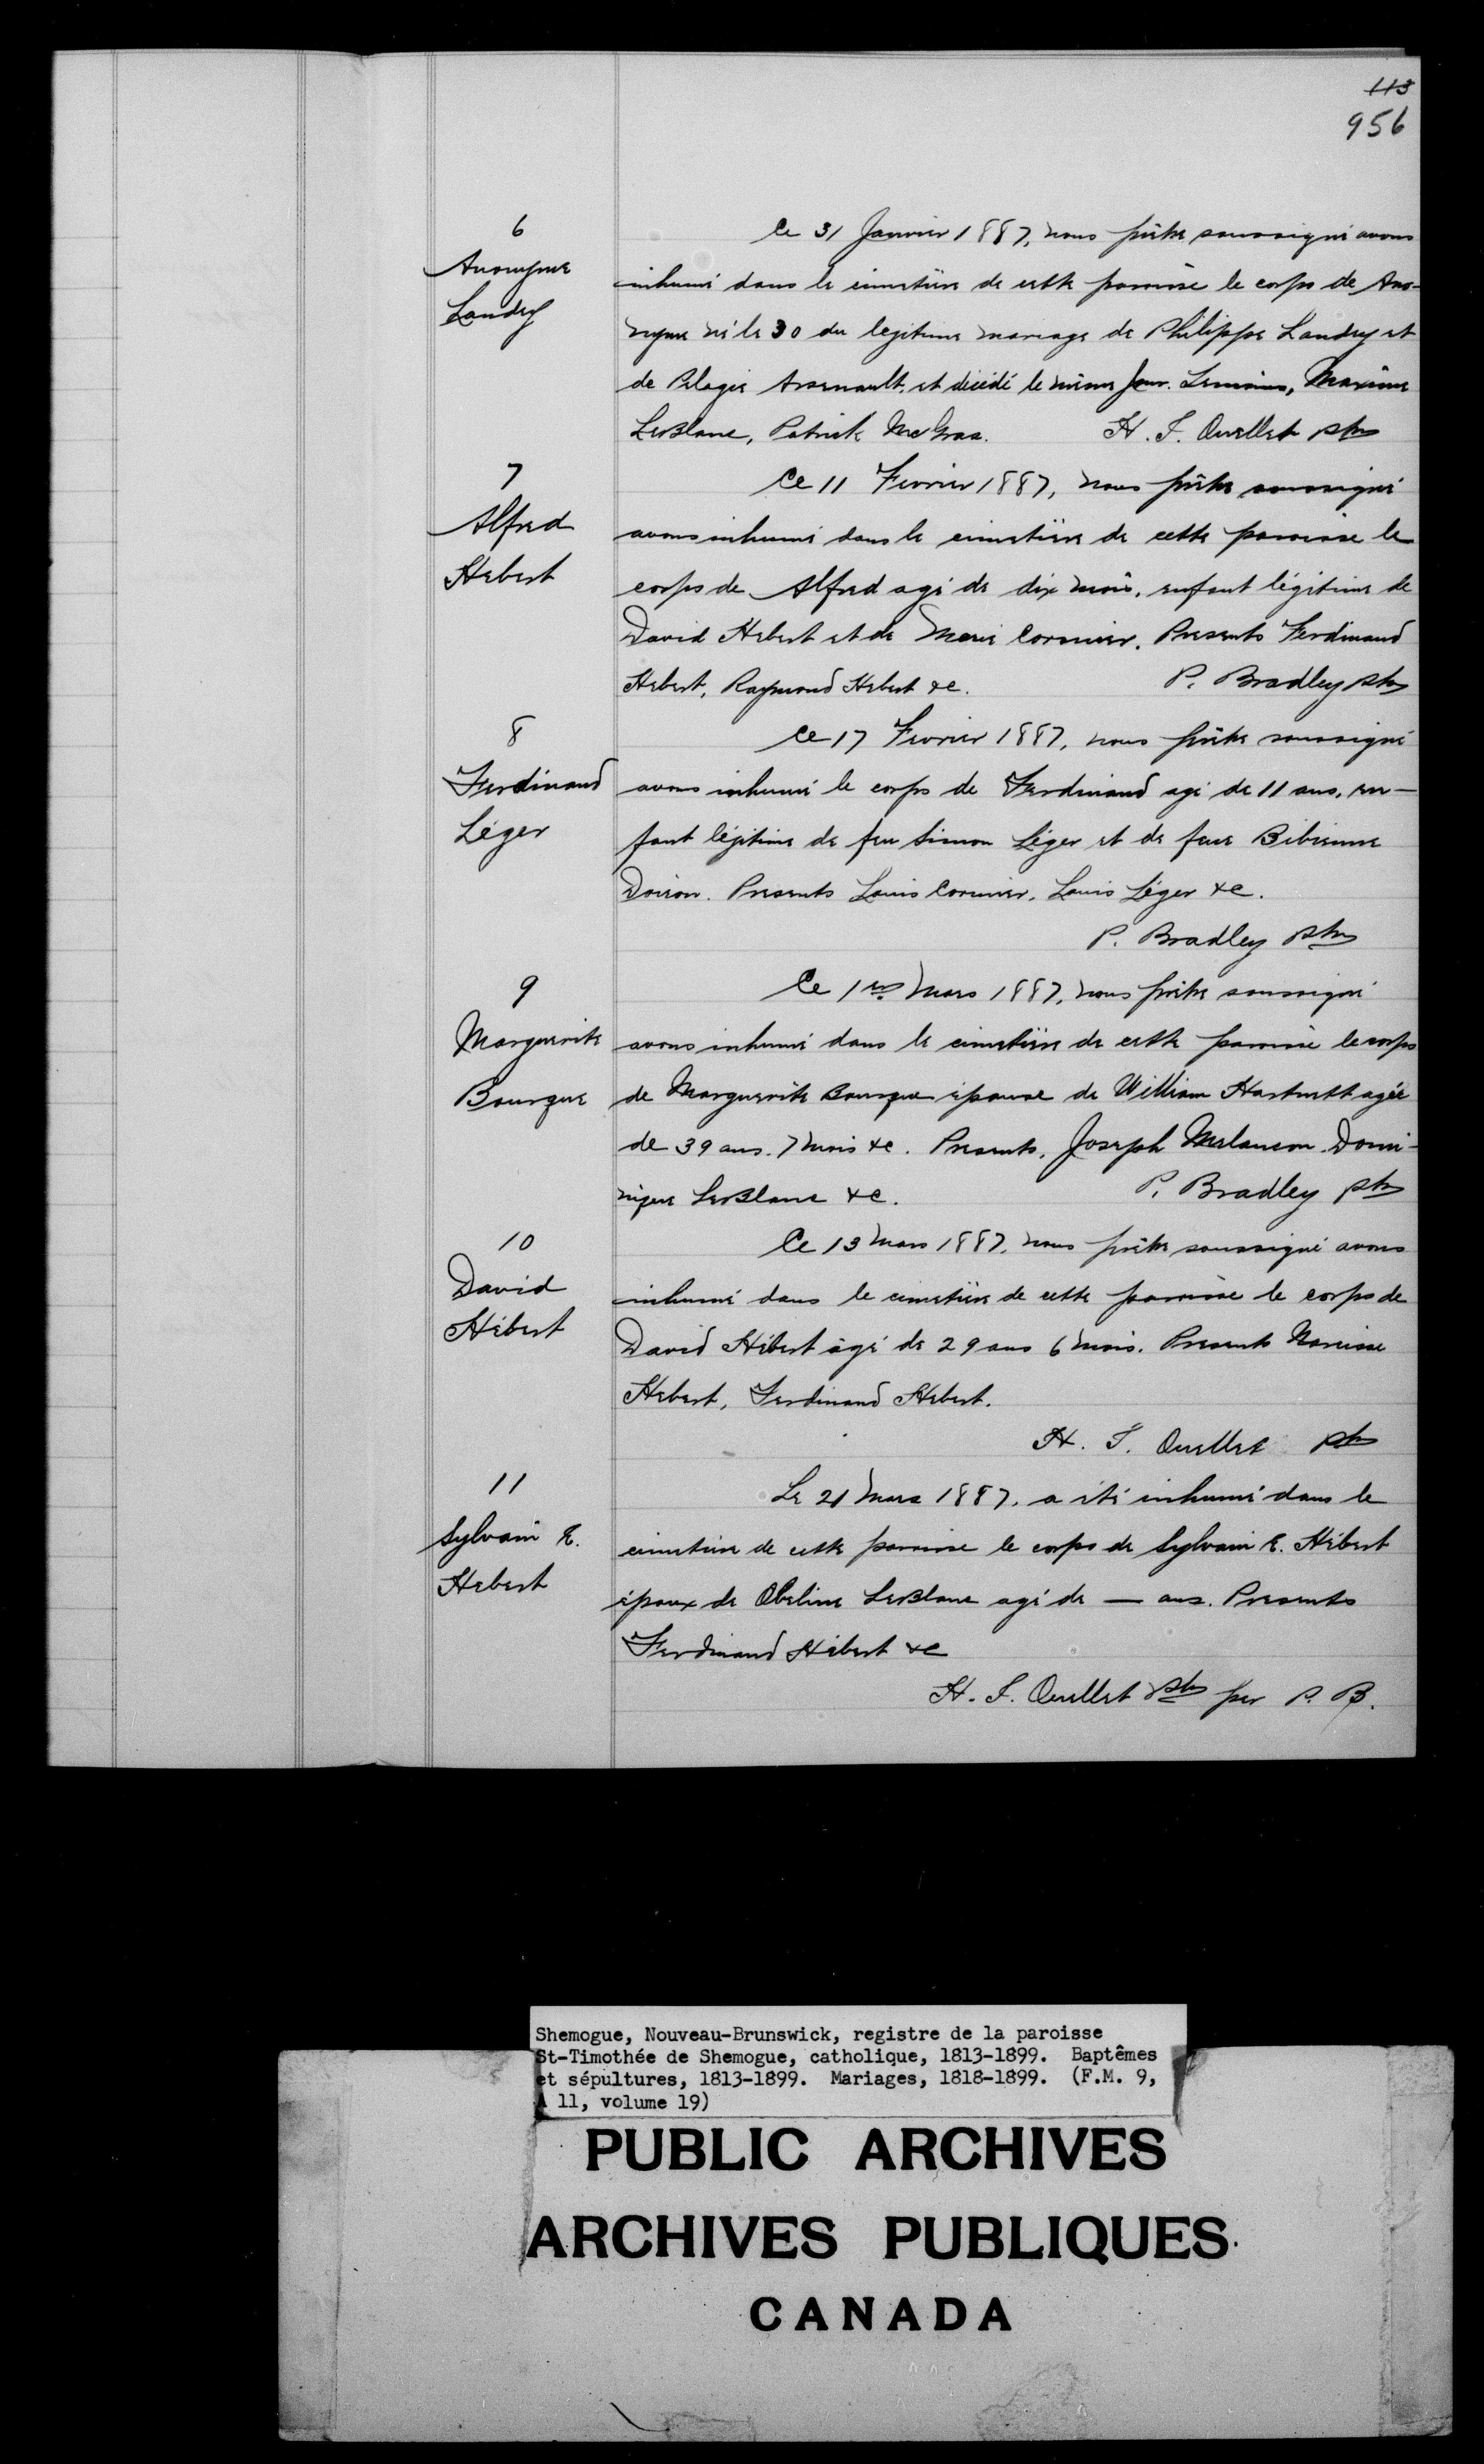 113
956
6
Anonyme
Landry
Ce 31 Janvier 1887, nous prêtre soussigné avons
inhumé dans le cimetière de cette paroisse le corps de Ano-
nyme né le 30 du legitime mariage de Philippe Landry et
de Pelagie Arsenault, et décédé le même jour. Temoins, Maxime
LeBlanc, Patrick McGraa. H. T. Ouellet ptre
7
Alfred
Hebert
Ce 11 Fevrier 1887, nous prêtre soussigné
avons inhumé dans le cimetière de cette paroisse le
corps de Alfred agé de dix mois, enfant légitime de
David Hebert et de Marie Cormier. Presents Ferdinand
Hebert, Raymond Hebert &c. P. Bradley ptre
8
Ferdinand
Léger
Ce 17 Fevrier 1887, nous prêtre soussigné
avons inhumé le corps de Ferdinand agé de 11 ans, en-
fant légitime de feu Simon Léger et de feue Bibienne
Doiron. Presents Louis Cormier, Louis Léger &c.
P. Bradley ptre
9
Marguerite
Bourque
Ce 1er Mars 1887, nous prêtre soussigné
avons inhumé dans le cimetière de cette paroisse le corps
de Marguerite Bourque épouse de William Hartnett agée
de 39 ans. 7 mois &c. Presents, Joseph Melancon Domi-
nique LeBlanc &c. P. Bradley ptre
10
David
Hébert
Ce 13 Mars 1887, nous prêtre soussigné avons
inhumé dans le cimetière de cette paroisse le corps de
David Hébert âgé de 29 ans 6 mois. Presents Narcisse
Hebert, Ferdinand Hebert.
H. T. Ouellet ptre
11
Sylvain E.
Hebert
Le 21 Mars 1887, a été inhumé dans le
cimetière de cette paroisse le corps de Sylvain E. Hébert
époux de Obeline LeBlanc agé de — ans. Presents
Ferdinand Hébert &c
H. T. Ouellet ptre per P. B.
Shemogue, Nouveau-Brunswick, registre de la paroisse
St-Timothée de Shemogue, catholique, 1813-1899. Baptêmes
et sépultures, 1813-1899. Mariages, 1818-1899. (F.M. 9,
A 11, volume 19)
PUBLIC ARCHIVES
ARCHIVES PUBLIQUES
CANADA